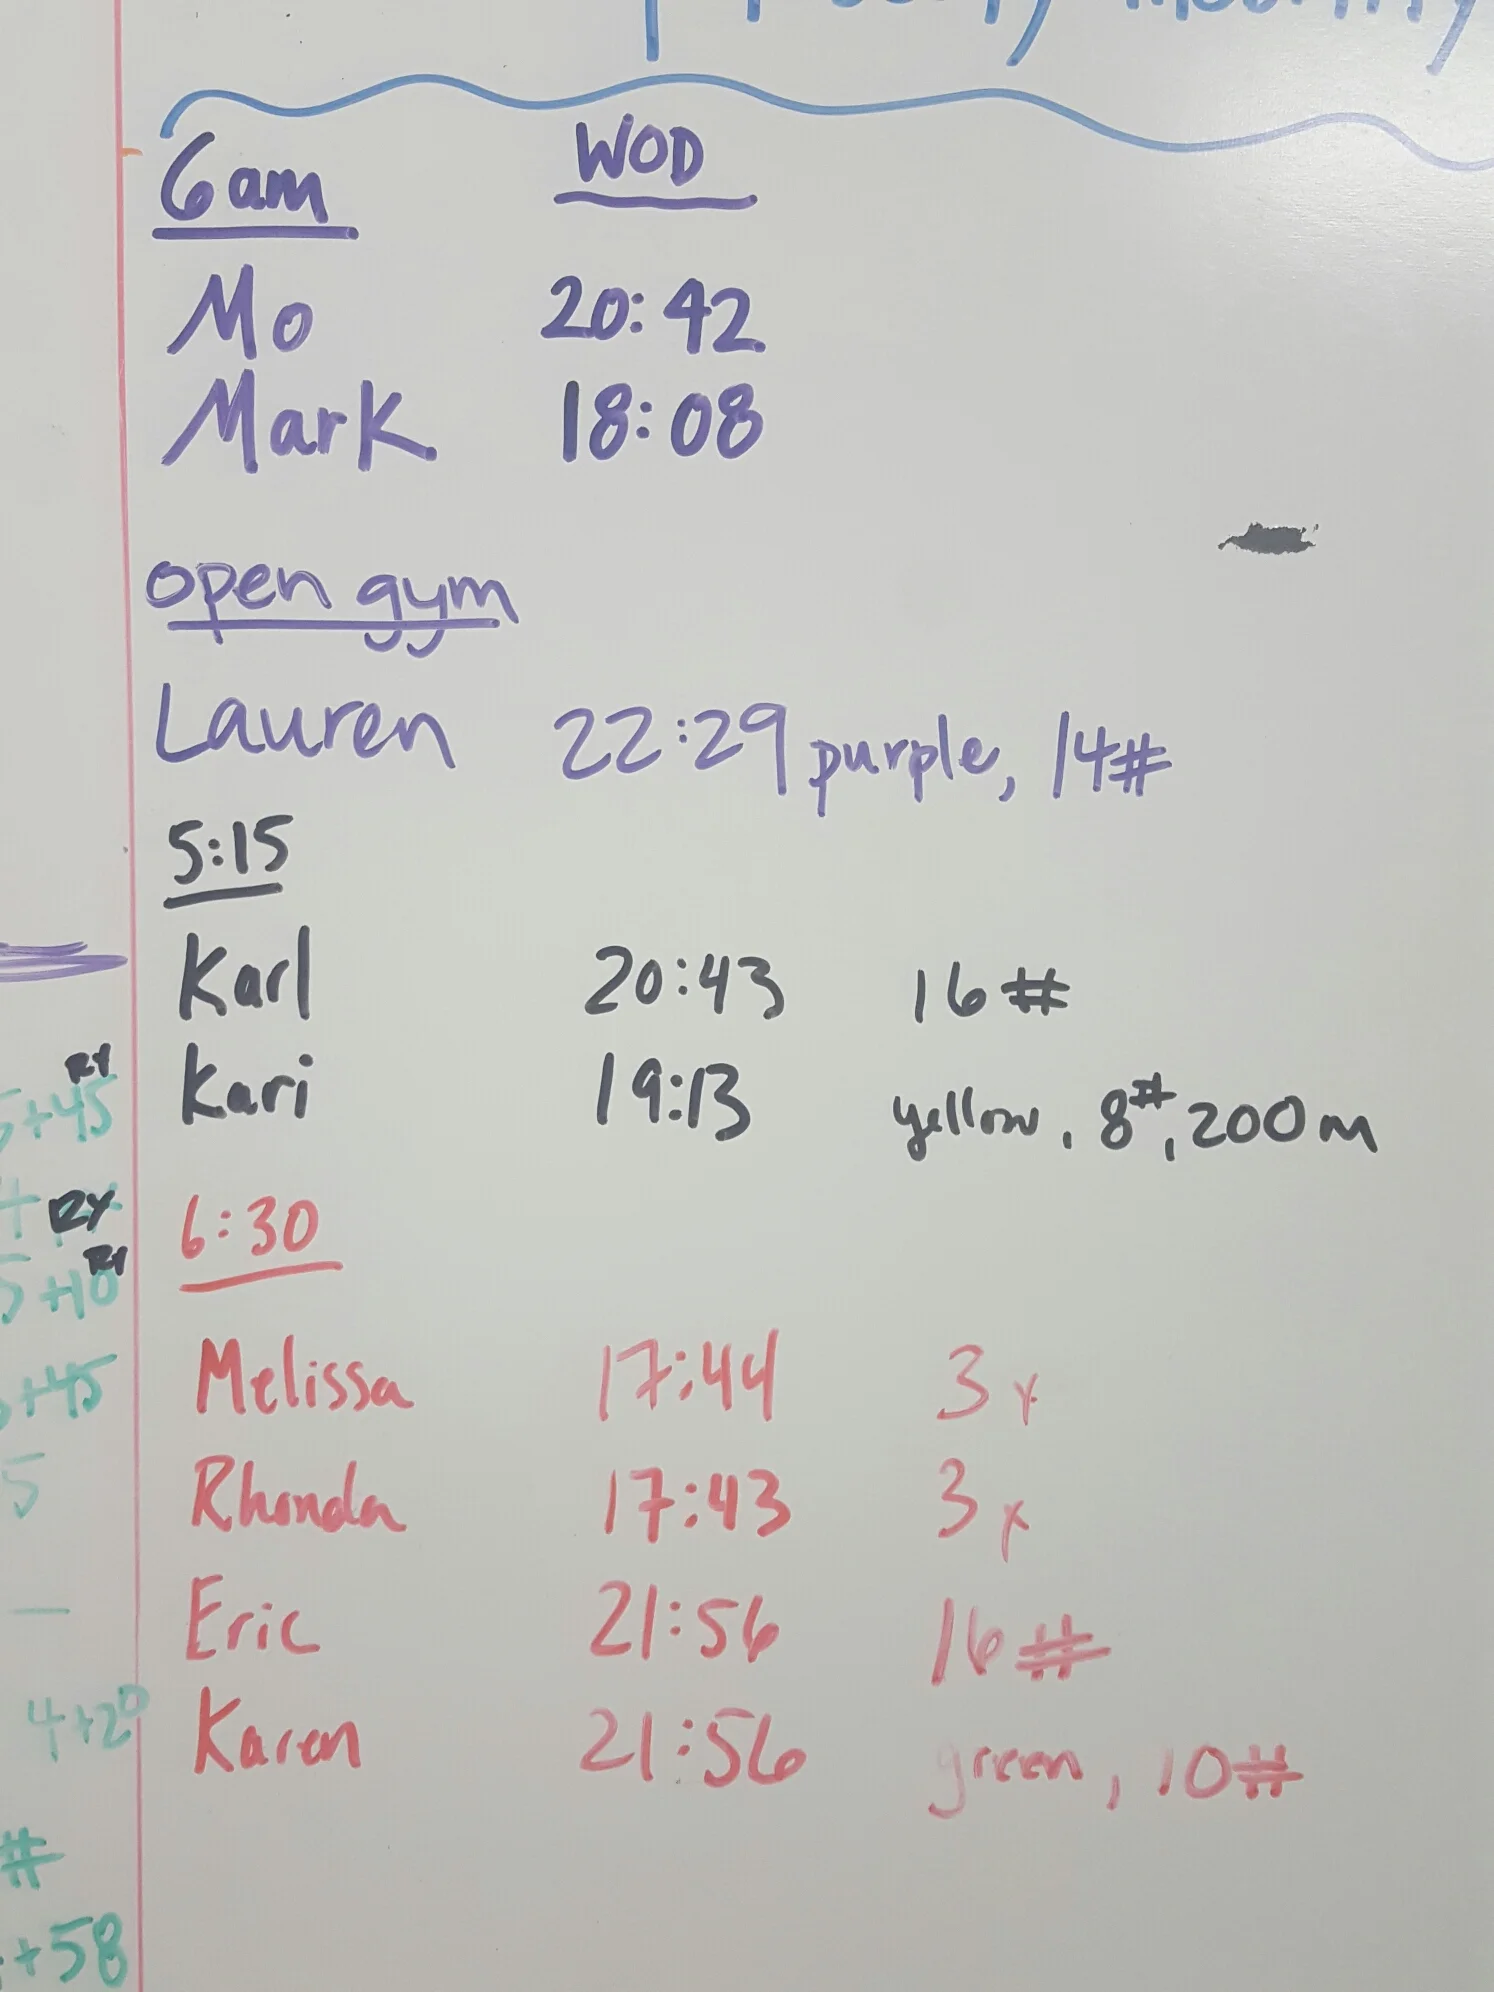 6am WOD
Mo 20:42
Mark 18:08
open gym
Lauren 22:29 purple, 14#
5:15
Karl 20:43 16#
Kari 19:13 yellow, 8#, 200m
6:30
Melissa 17:44 3x
Rhonda 17:43 3x
Eric 21:56 16#
Karen 21:56 green, 10#
RX
+45
RX
RX
+10
+45
5
4+20
#
+58